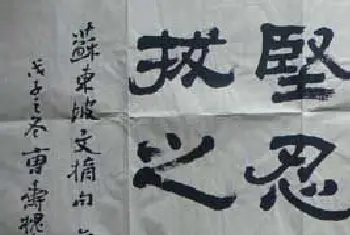 堅忍
拔之
蘇東坡文摘句
戊子之冬曹